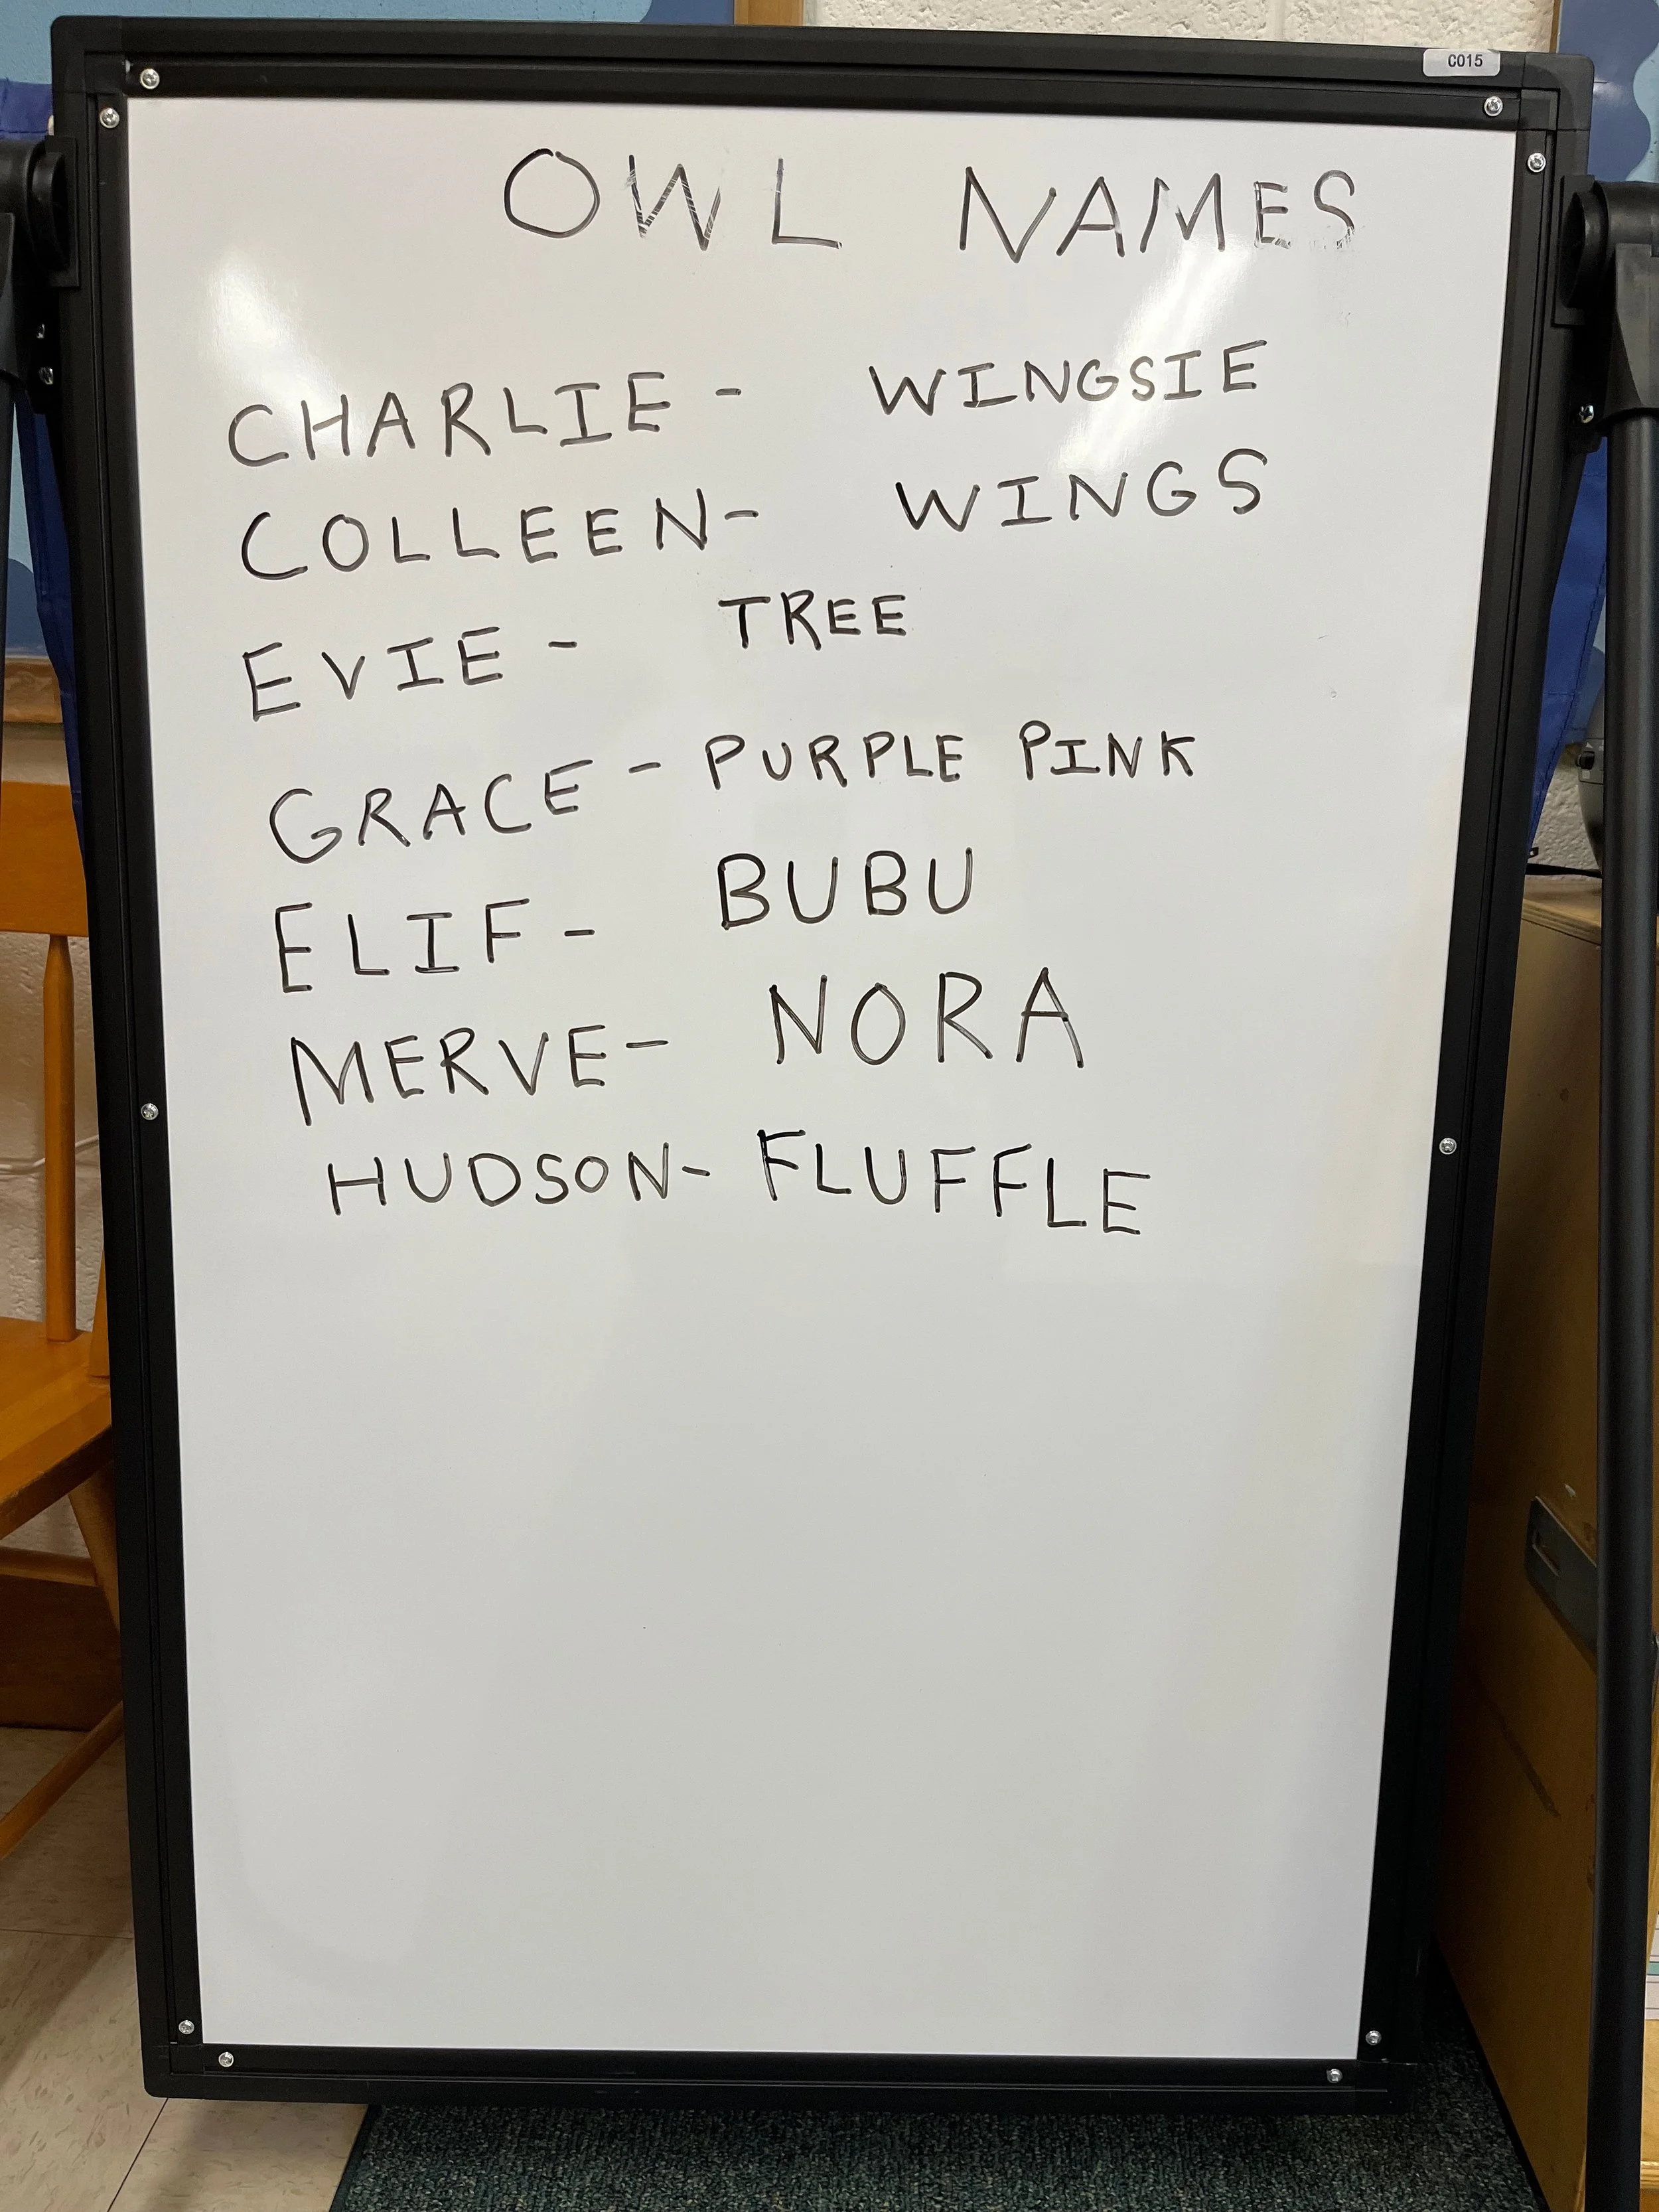 C015
OWL NAMES
CHARLIE - WINGSIE
COLLEEN- WINGS
EVIE - TREE
GRACE - PURPLE PINK
ELIF - BUBU
MERVE- NORA
HUDSON- FLUFFLE